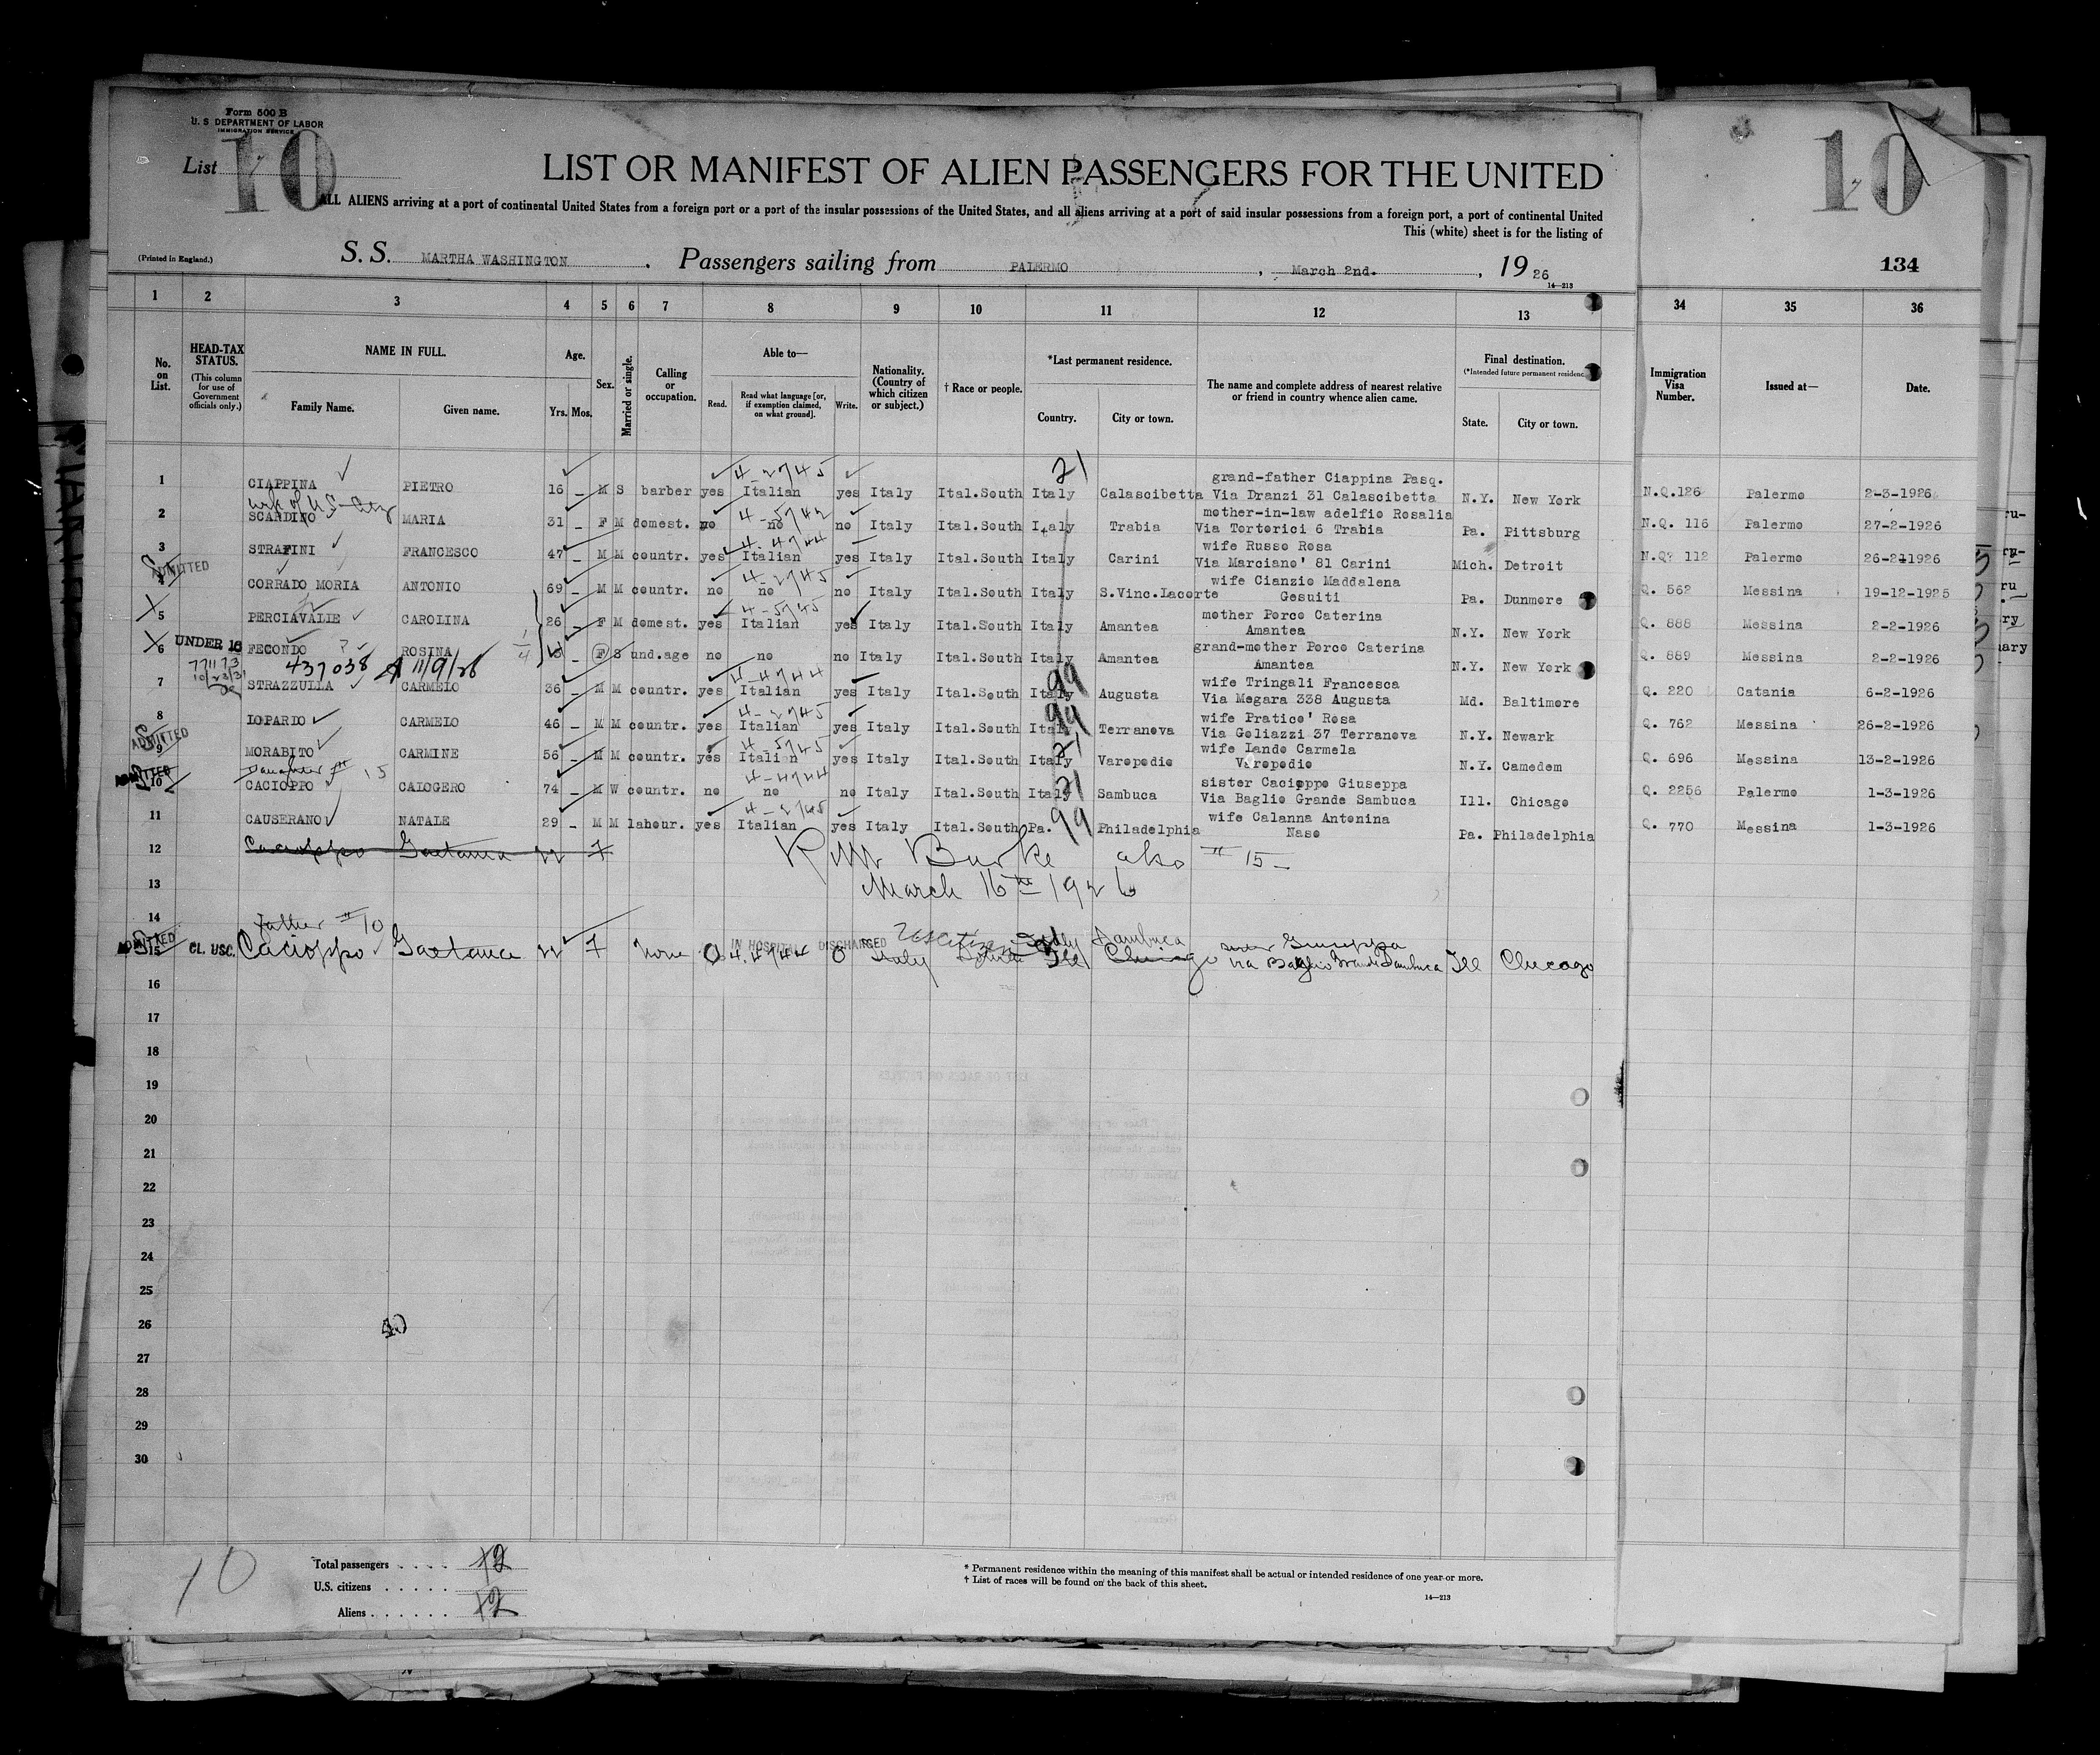 Form 500 B
U. S. DEPARTMENT OF LABOR
IMMIGRATION SERVICE
List 10
10
LIST OR MANIFEST OF ALIEN PASSENGERS FOR THE UNITED
ALL ALIENS arriving at a port of continental United States from a foreign port or a port of the insular possessions of the United States, and all aliens arriving at a port of said insular possessions from a foreign port, a port of continental United
This (white) sheet is for the listing of
(Printed in England.)
S. S. MARTHA WASHINGTON. Passengers sailing from PALERMO, March 2nd., 1926
14—213
134
1 2 3 4 5 6 7 8 9 10 11 12 13 34 35 36
No. on List.
HEAD-TAX STATUS.
(This column for use of Government officials only.)
NAME IN FULL.
Family Name. Given name.
Age.
Yrs. Mos.
Sex.
Married or single.
Calling or occupation.
Able to—
Read. Read what language [or, if exemption claimed, on what ground]. Write.
Nationality. (Country of which citizen or subject.)
† Race or people.
*Last permanent residence.
Country. City or town.
The name and complete address of nearest relative or friend in country whence alien came.
Final destination.
(*Intended future permanent residence
State. City or town.
Immigration Visa Number.
Issued at—
Date.
21
4-2745
grand-father Ciappina Pasq.
1 CIAPPINA PIETRO 16 - M S barber yes Italian yes Italy Ital.South Italy Calascibetta Via Dranzi 31 Calascibetta N.Y. New York N.Q.126 Palermo 2-3-1926
mother-in-law adelfio Rosalia
2 SCARDINO MARIA 31 - F M domest. no no no Italy Ital.South Italy Trabia Via Tortorici 6 Trabia Pa. Pittsburg N.Q. 116 Palermo 27-2-1926
4-4744
wife Russo Rosa
3 STRAFINI FRANCESCO 47 - M M countr. yes Italian yes Italy Ital.South Italy Carini Via Marciano' 81 Carini Mich. Detroit N.Q? 112 Palermo 26-2-1926
ADMITTED
4-2745
wife Cianzio Maddalena
4 CORRADO MORIA ANTONIO 69 - M M countr. no no no Italy Ital.South Italy S.Vinc.Lacorte Gesuiti Pa. Dunmore Q. 562 Messina 19-12-1925
4-5745
mother Porco Caterina
5 PERCIAVALIE CAROLINA 26 - F M domest. yes Italian yes Italy Ital.South Italy Amantea Amantea N.Y. New York Q. 888 Messina 2-2-1926
UNDER 16
grand-mother Porco Caterina
6 FECONDO ROSINA - F S und.age no no no Italy Ital.South Italy Amantea Amantea N.Y. New York Q. 889 Messina 2-2-1926
437038 11/9/28
4-4744
99
wife Tringali Francesca
7 STRAZZULLA CARMELO 36 - M M countr. yes Italian yes Italy Ital.South Italy Augusta Via Megara 338 Augusta Md. Baltimore Q. 220 Catania 6-2-1926
4-2745
99
wife Pratico' Rosa
8 LOPARDO CARMELO 46 - M M countr. yes Italian yes Italy Ital.South Italy Terranova Via Goliazzi 37 Terranova N.Y. Newark Q. 762 Messina 26-2-1926
ADMITTED
4-5745
21
wife Lando Carmela
9 MORABITO CARMINE 56 - M M countr. yes Italian yes Italy Ital.South Italy Varopodio Varopodio N.Y. Camedem Q. 696 Messina 13-2-1926
ADMITTED
Daughter # 15
4-4744
21
sister Cacioppo Giuseppa
10 CACIOPPO CALOGERO 74 - M W countr. no no no Italy Ital.South Italy Sambuca Via Baglio Grande Sambuca Ill. Chicago Q. 2256 Palermo 1-3-1926
4-2745
99
wife Calanna Antonina
11 CAUSERANO NATALE 29 - M M labour. yes Italian yes Italy Ital.South Pa. Philadelphia Naso Pa. Philadelphia Q. 770 Messina 1-3-1926
12 Cacioppo Gaetana 22 F
Burke also # 15
March 16th 1926
13
14
Father #10
ADMITTED
IN HOSPITAL DISCHARGED
15 CL. USC. Cacioppo Gaetana 22 F None 4.4744 Italy Ill Chicago
Sambuca
Giuseppa
Via Baglio Grande Sambuca Ill Chicago
16
17
18
19
20
21
22
23
24
25
26
27
28
29
30
10
Total passengers . . . . 12
U.S. citizens . . . . .
Aliens . . . . . . 12
* Permanent residence within the meaning of this manifest shall be actual or intended residence of one year or more.
† List of races will be found on the back of this sheet.
14—213